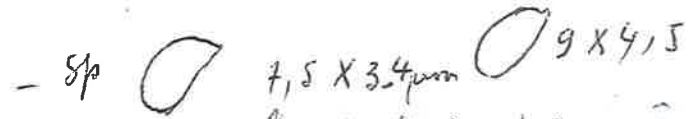 - sp 7,5 X 3.4 µm 9 X 4,5